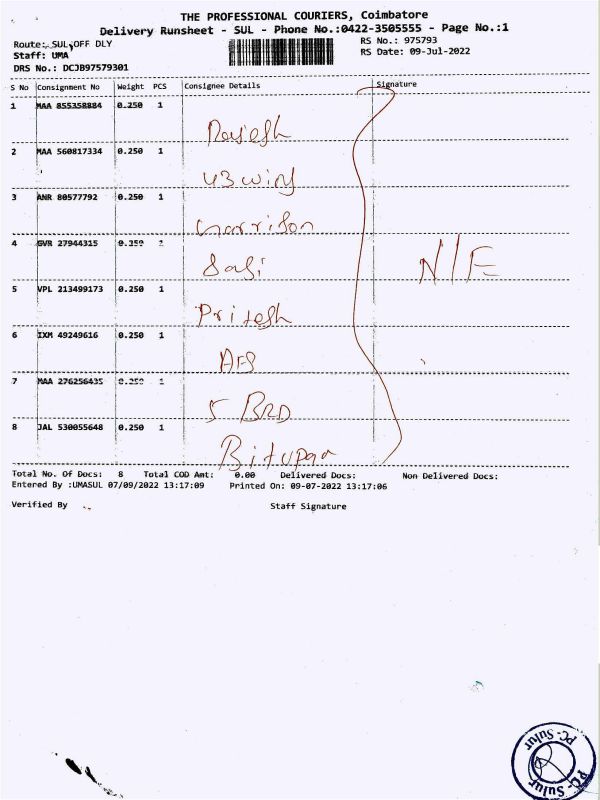 THE PROFESSIONAL COURIERS, Coimbatore
Delivery Runsheet - SUL - Phone No.:0422-3505555 - Page No.:1
Route: SUL OFF DLY
RS No.: 975793
Staff: UMA
RS Date: 09-Jul-2022
DRS No.: DCJB97579301
S No Consignment No Weight PCS Consignee Details Signature
1 MAA 855358884 0.250 1
Rajesh
2 MAA 560817334 0.250 1
43 wing
3 ANR 80577792 0.250 1
Garrison
4 GVR 27944315 0.250 1
Sasi
N/E
5 VPL 213499173 0.250 1
Pritesh
6 IXM 49249616 0.250 1
AFS
7 MAA 276256435 0.250 1
5 BRD
8 JAL 530055648 0.250 1
Total No. Of Docs: 8 Total COD Amt: 0.00 Delivered Docs: Non Delivered Docs:
Entered By :UMASUL 07/09/2022 13:17:09 Printed On: 09-07-2022 13:17:06
Verified By Staff Signature
PC-Sulur
PC-Sulur